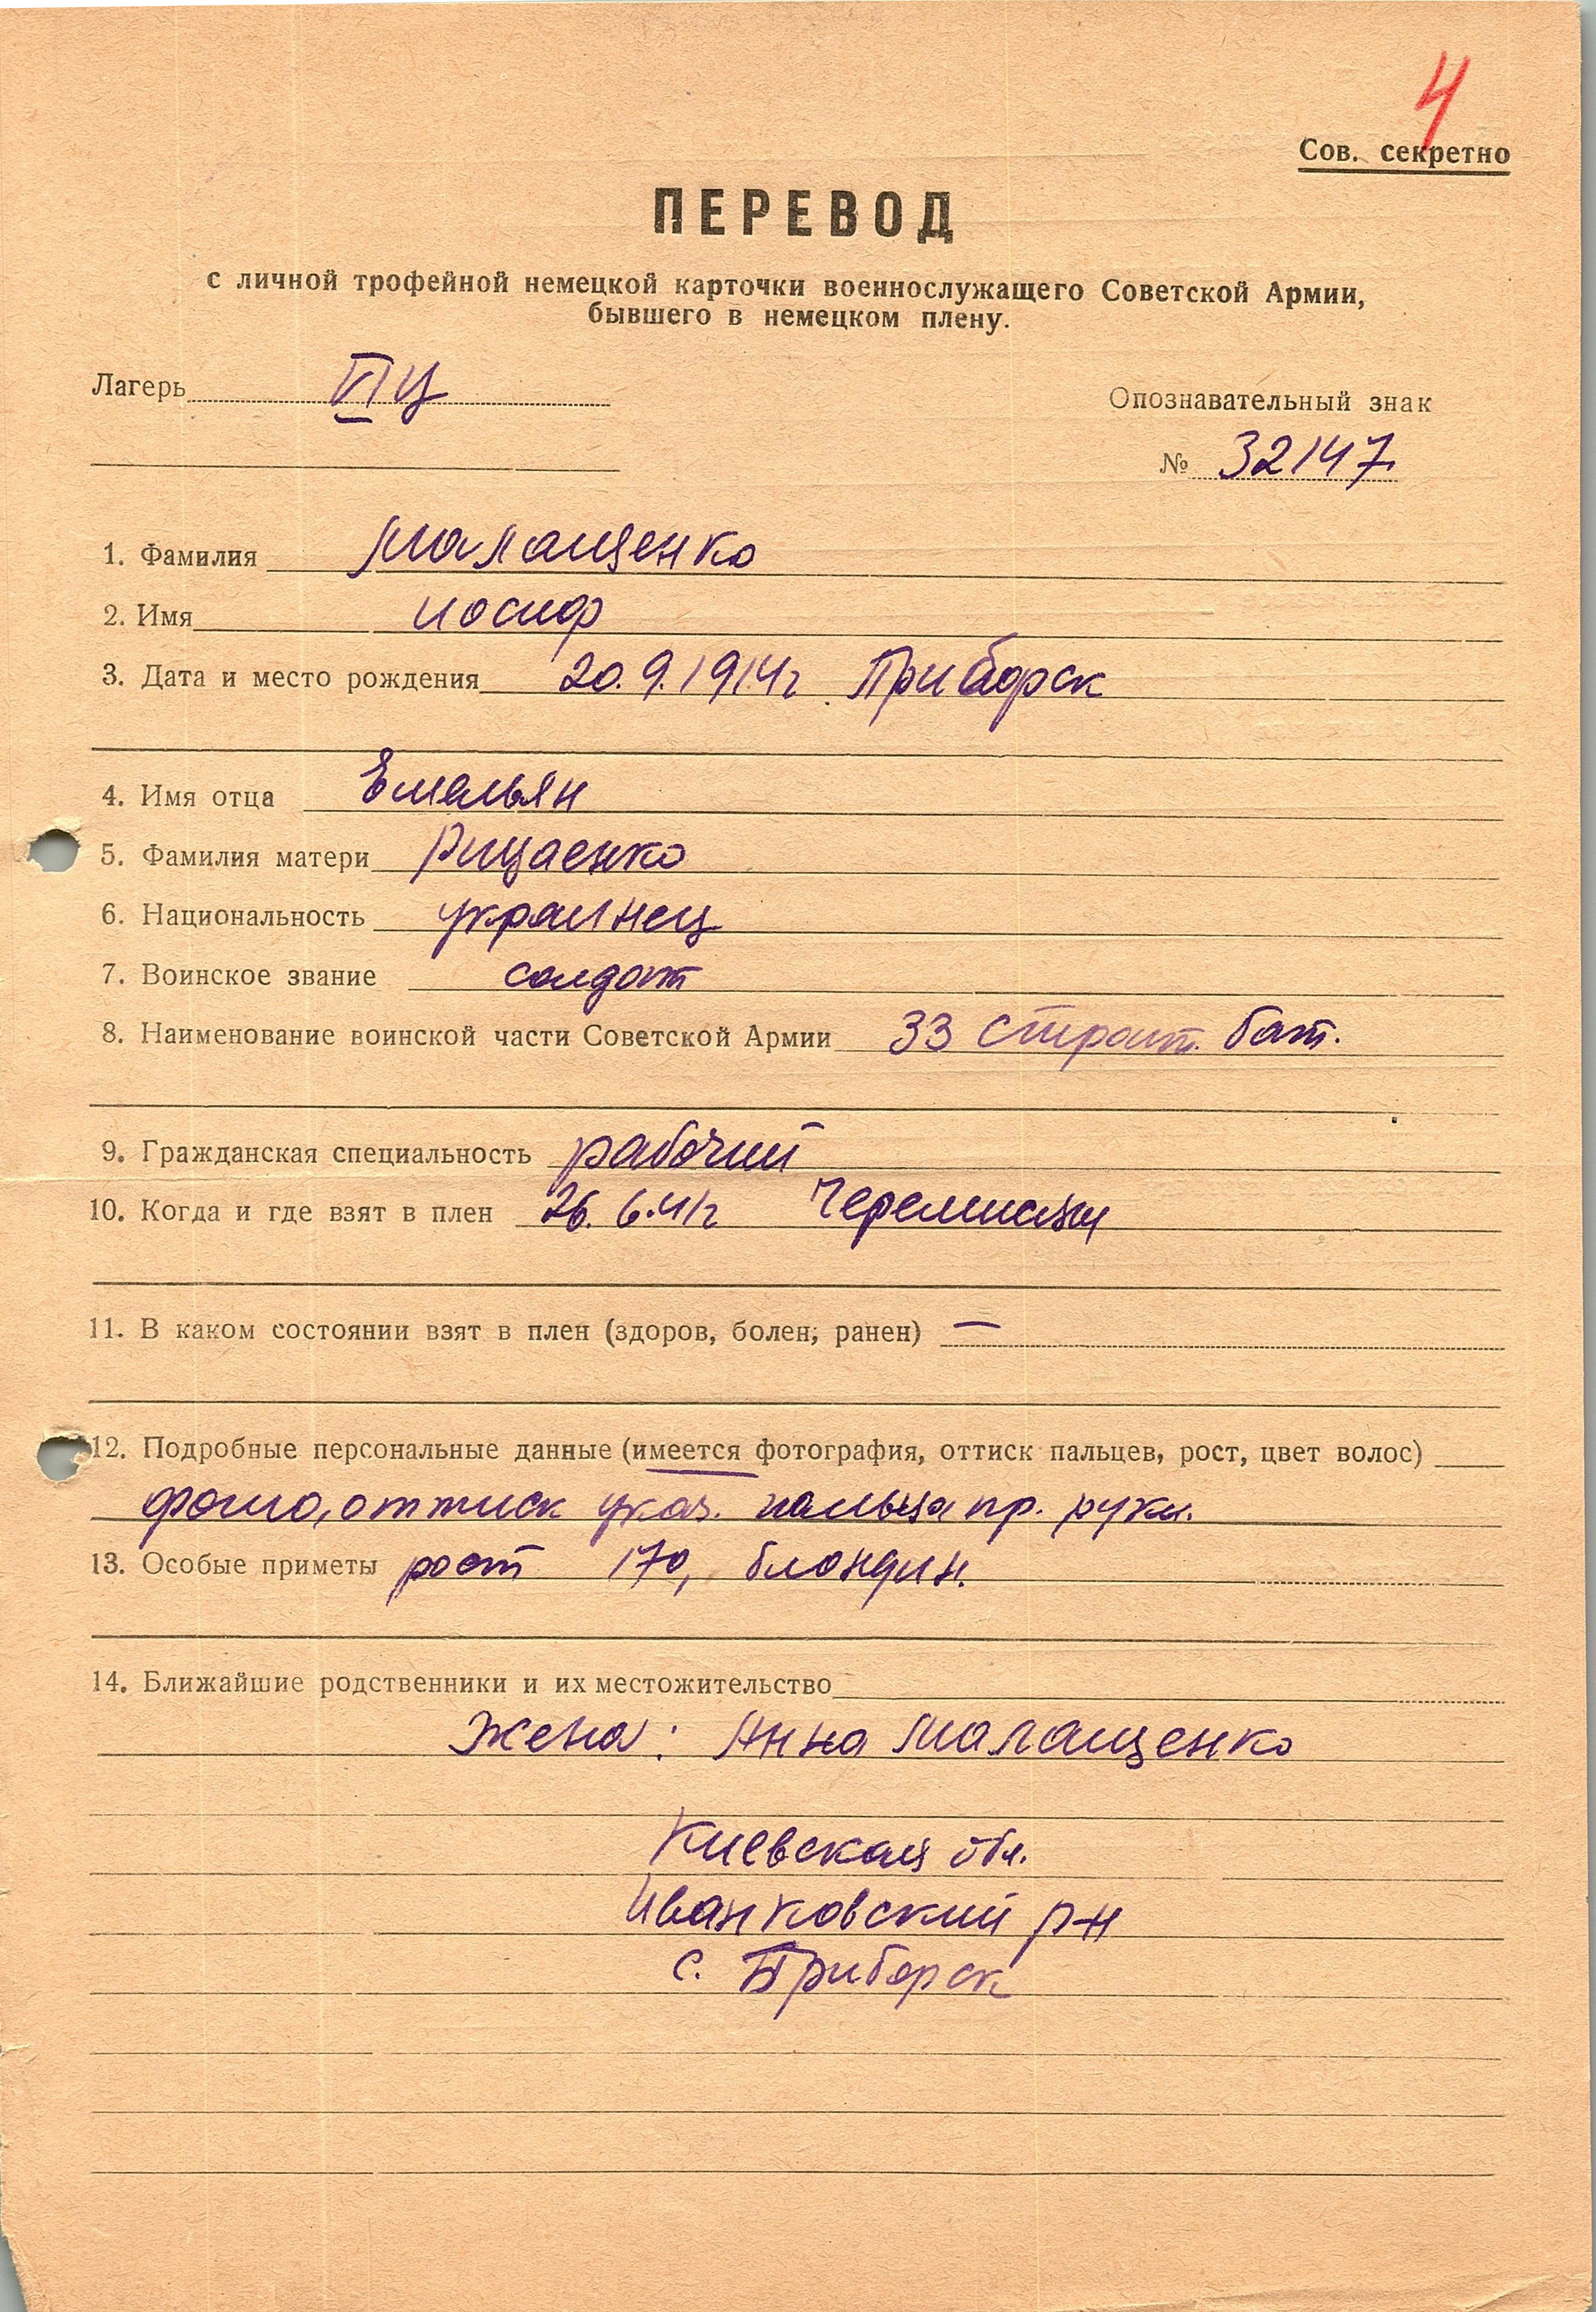 4
Сов. секретно
ПЕРЕВОД
с личной трофейной немецкой карточки военнослужащего Советской Армии,
бывшего в немецком плену.
Лагерь
Опознавательный знак
№ 32147
1. Фамилия Малащенко
2. Имя Иосиф
3. Дата и место рождения 20.9.1914г Приборск
4. Имя отца Емельян
5. Фамилия матери
6. Национальность украинец
7. Воинское звание солдат
8. Наименование воинской части Советской Армии 33 строит. бат.
9. Гражданская специальность рабочий
10. Когда и где взят в плен 26.6.41г
11. В каком состоянии взят в плен (здоров, болен, ранен) —
12. Подробные персональные данные (имеется фотография, оттиск пальцев, рост, цвет волос)
фото, оттиск указ. пальца пр. руки.
13. Особые приметы рост 170, блондин.
14. Ближайшие родственники и их местожительство
Жена: Анна Малащенко
Киевская обл.
Иванковский р-н
с. Приборск